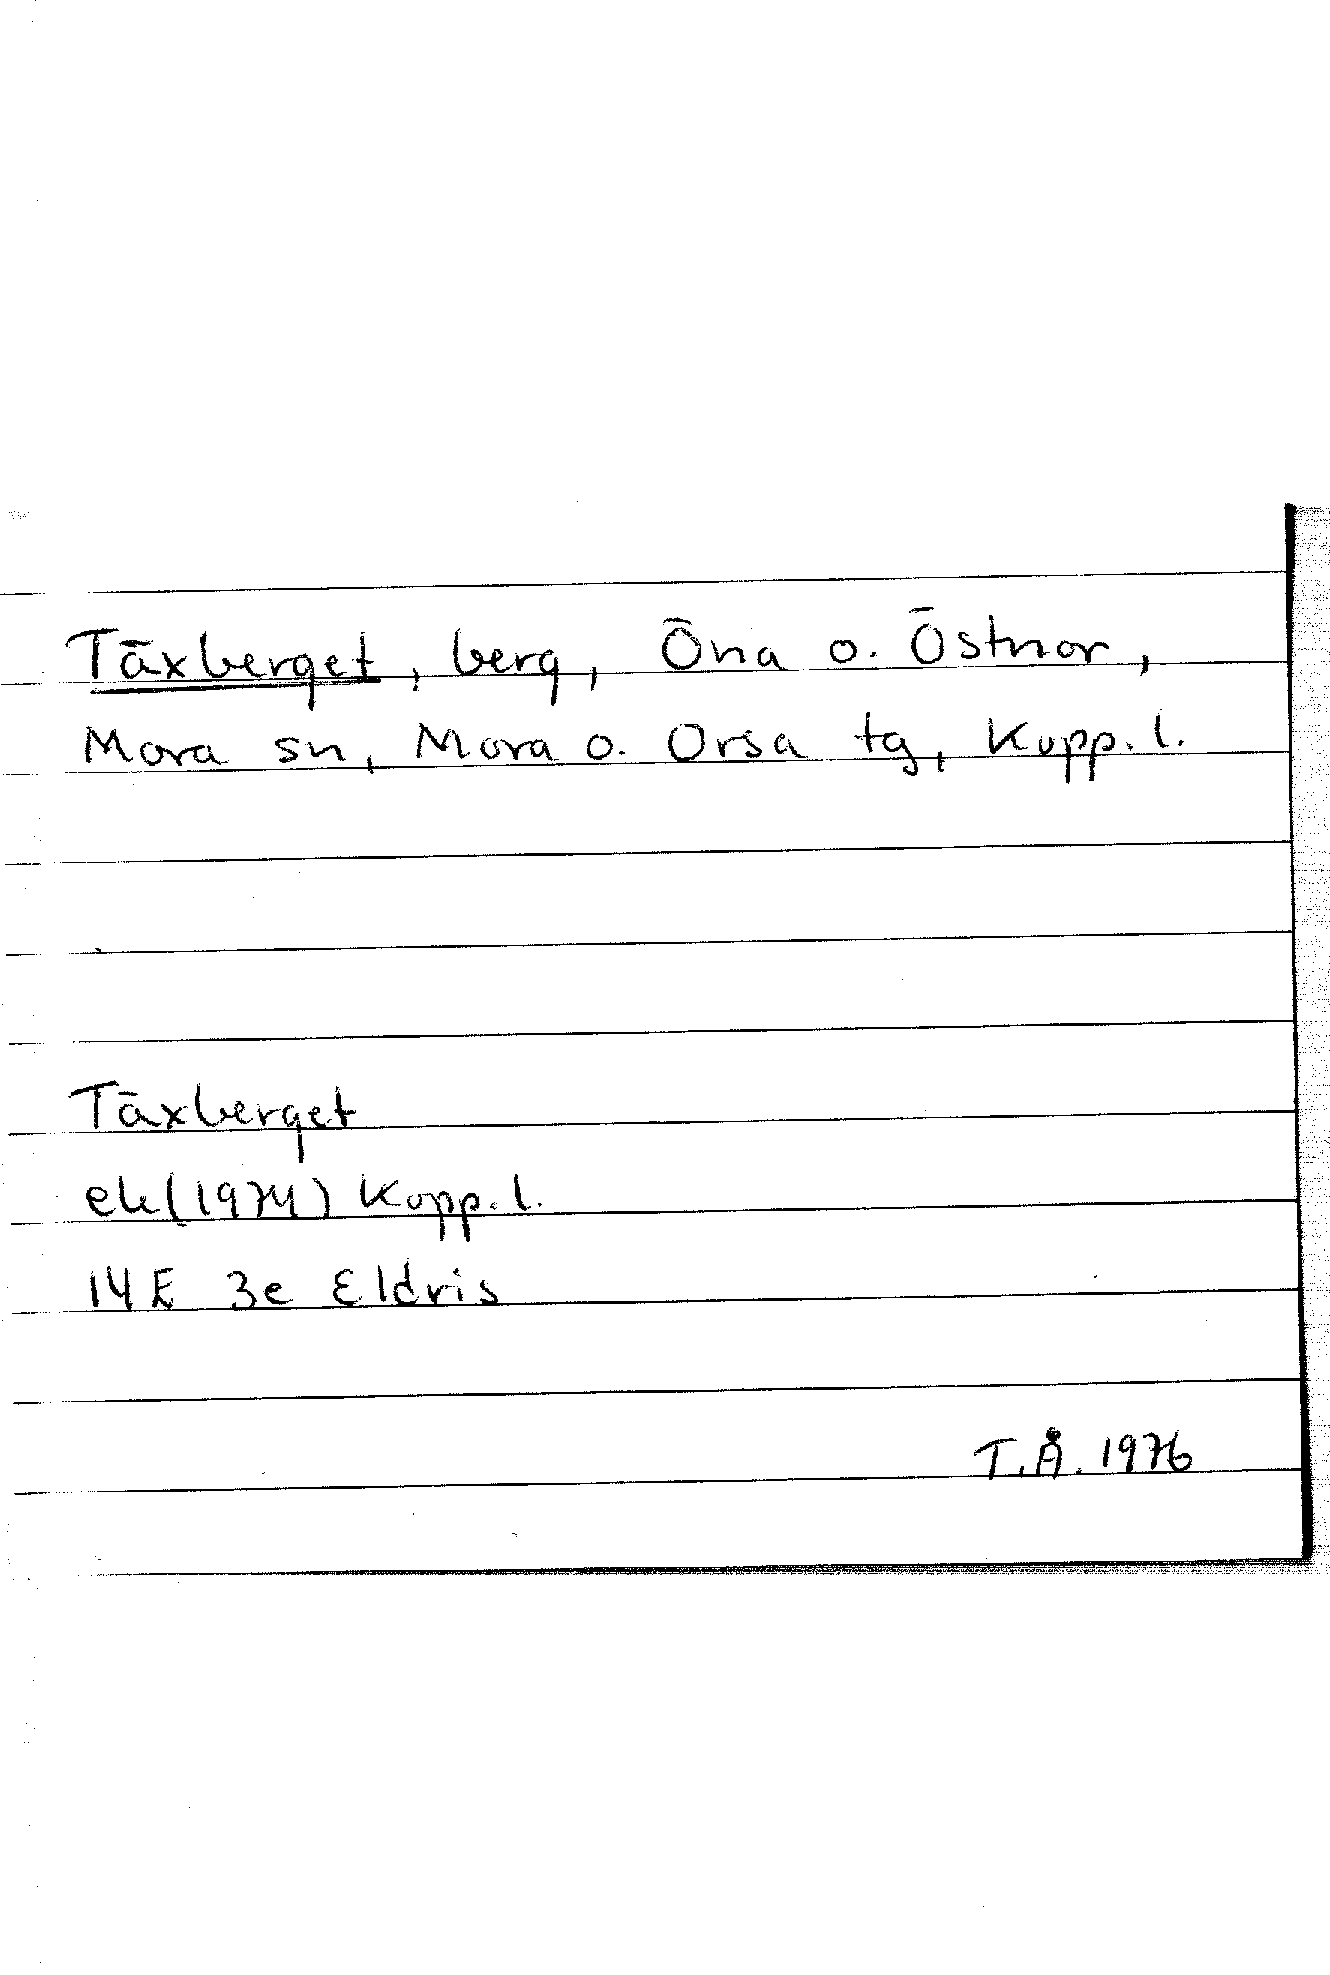 Täxberget, berg, Öna o. Östnor,
Mora sn, Mora o. Orsa tg, Kopp. l.
Täxberget
ek (1974) Kopp. l.
14E 3e Eldris
T.Å. 1976